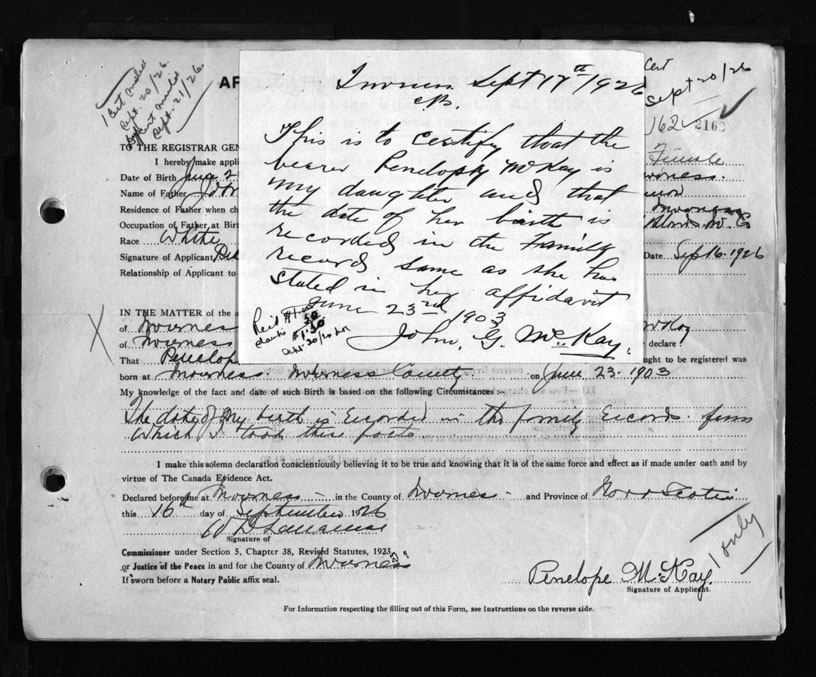 1 Cert mailed
Sept. 20/26.
Cert mailed
Sept. 21/26.
AF
Cert
Sept 20/26
162
2163
Inverness Sept 17th 1926
CB.
This is to certify that the
bearer Penelopy McKay is
my daughter and that
the date of her birth is
recorded in the Family
record same as she has
stated in her affidavit
June 23rd 1903
John. G. McKay.
Rec'd $1.00
50
$1.50
Sept 20/26
TO THE REGISTRAR GEN
I hereby make appli
Female
Date of Birth June 2
Name of Father John
Residence of Father when ch
Inverness
Occupation of Father at Birt
Race White
Signature of Applicant Pen
Date Sept 16. 1926
Relationship of Applicant to
IN THE MATTER of the a
of Inverness
McKay
of Inverness
declare:
That Penelope
ught to be registered was
born at Inverness. Inverness County on June 23. 1903
My knowledge of the fact and date of such Birth is based on the following Circumstances:-
The date of my birth is recorded in the family records from
which I took these facts
I make this solemn declaration conscientiously believing it to be true and knowing that it is of the same force and effect as if made under oath and by
virtue of The Canada Evidence Act.
Declared before me at Inverness - in the County of Inverness - and Province of Nova Scotia
this 16th day of September 1926
Signature of
Commissioner under Section 5, Chapter 38, Revised Statutes, 1923,
or Justice of the Peace in and for the County of Inverness
If sworn before a Notary Public affix seal.
1 only
Penelope McKay
Signature of Applicant.
For Information respecting the filling out of this Form, see Instructions on the reverse side.